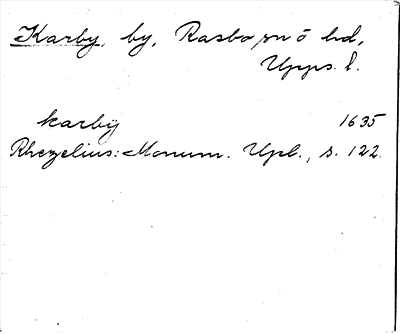 Karby, by, Rasbo sn o hd,
Upps. l.
karbÿ 1635
Rhezelius: Monum. Upl., s. 122.